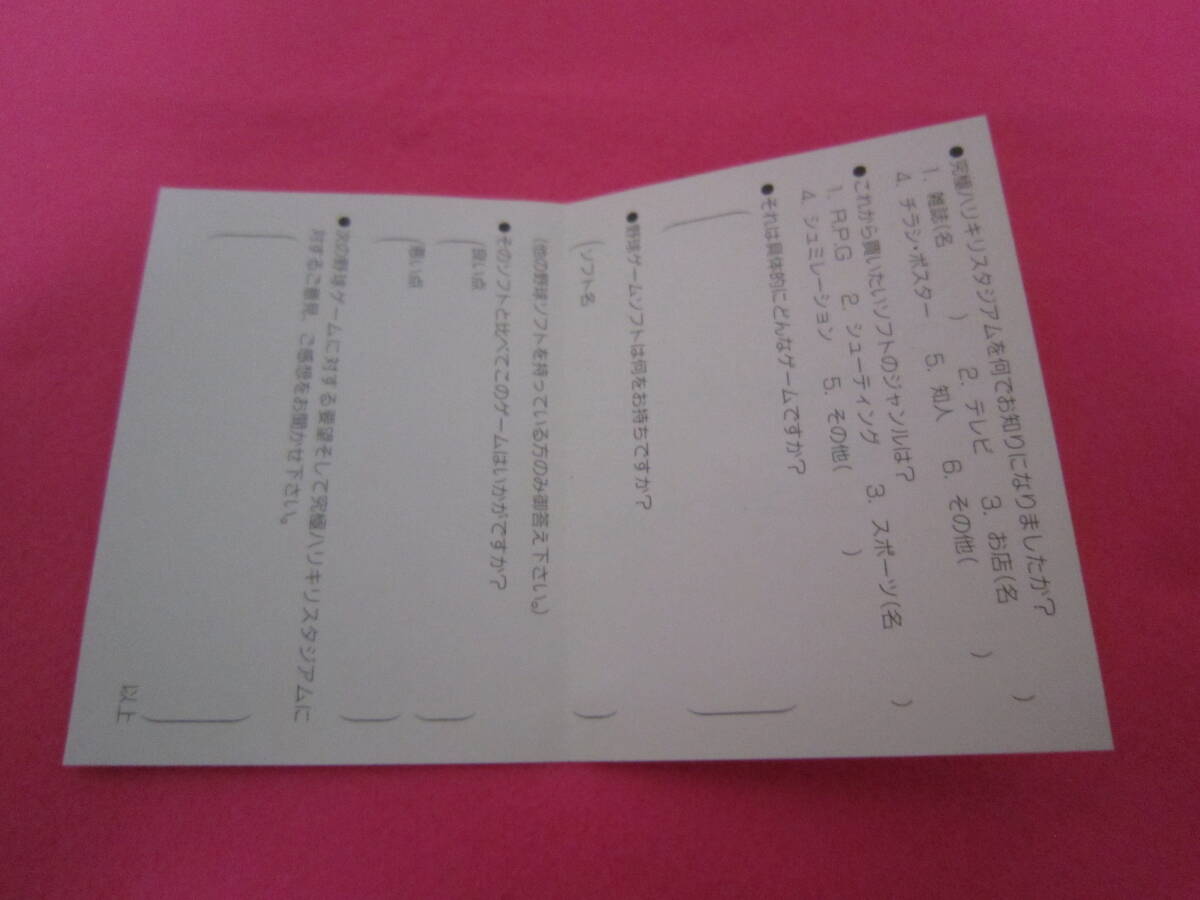 ●究極ハリキリスタジアムを何でお知りになりましたか？
1. 雑誌(名　　　) 2. テレビ 3. お店(名　　　)
4. チラシ・ポスター 5. 知人 6. その他(　　　)
●これから買いたいソフトのジャンルは？
1. R.P.G 2. シューティング 3. スポーツ(名　　　)
4. シュミレーション 5. その他(　　　)
●それは具体的にどんなゲームですか？
(　　　)
●野球ゲームソフトは何をお持ちですか？
(ソフト名　　　)
(他の野球ソフトを持っている方のみ御答え下さい。)
●そのソフトと比べてこのゲームはいかがですか？
(良い点　　　)
(悪い点　　　)
●次の野球ゲームに対する要望そして究極ハリキリスタジアムに
対するご意見、ご感想をお聞かせ下さい。
(　　　)
以上